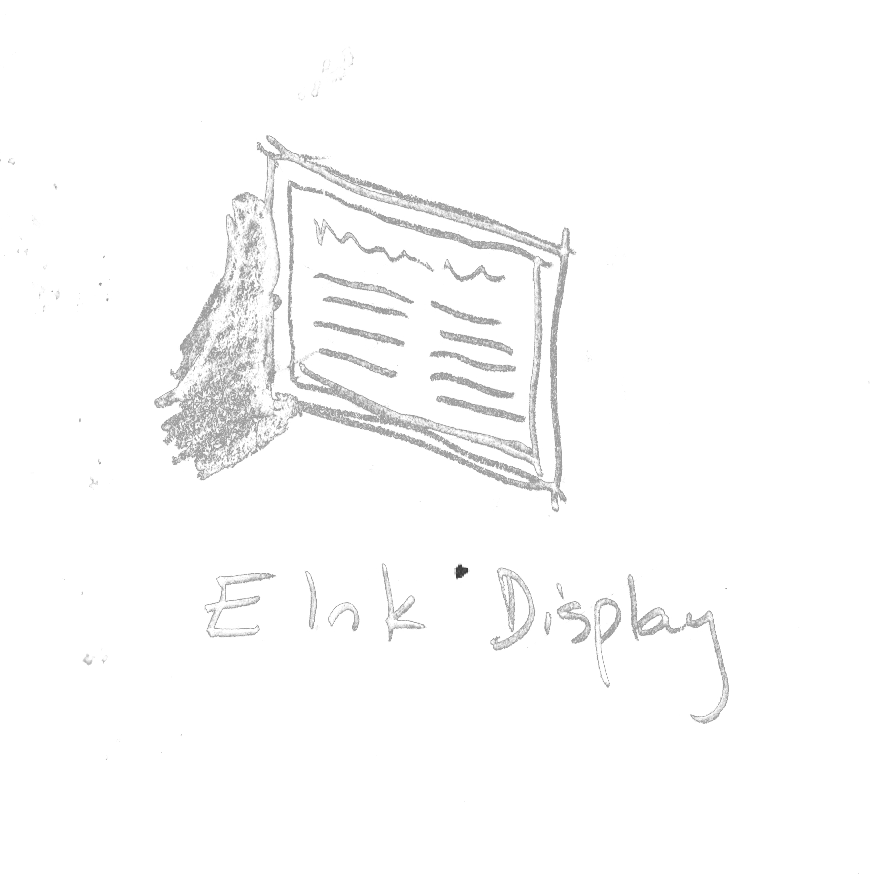 E Ink Display